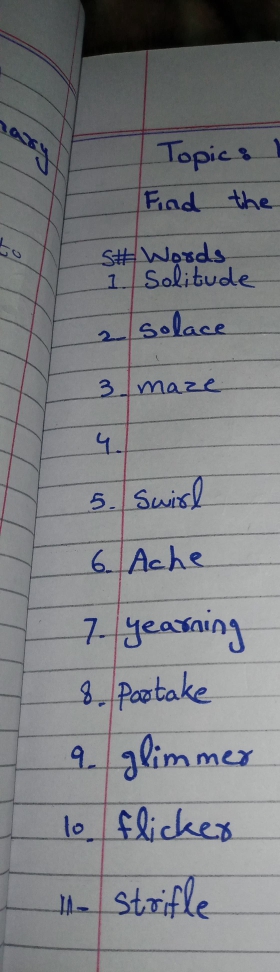 nary
to
Topics
Find the
S# Words
1. Solitude
2. Solace
3. maze
4.
5. Swirl
6. Ache
7. yearning
8. Partake
9. glimmer
10. flicker
11- Strifle